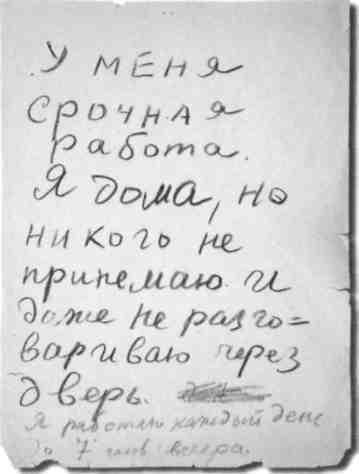 У МЕНЯ
СРОЧНАЯ
работа.
Я дома, но
никого не
принемаю и
даже не разго=
вариваю через
дверь.
Я работаю каждый день
до 7 часов вечера.